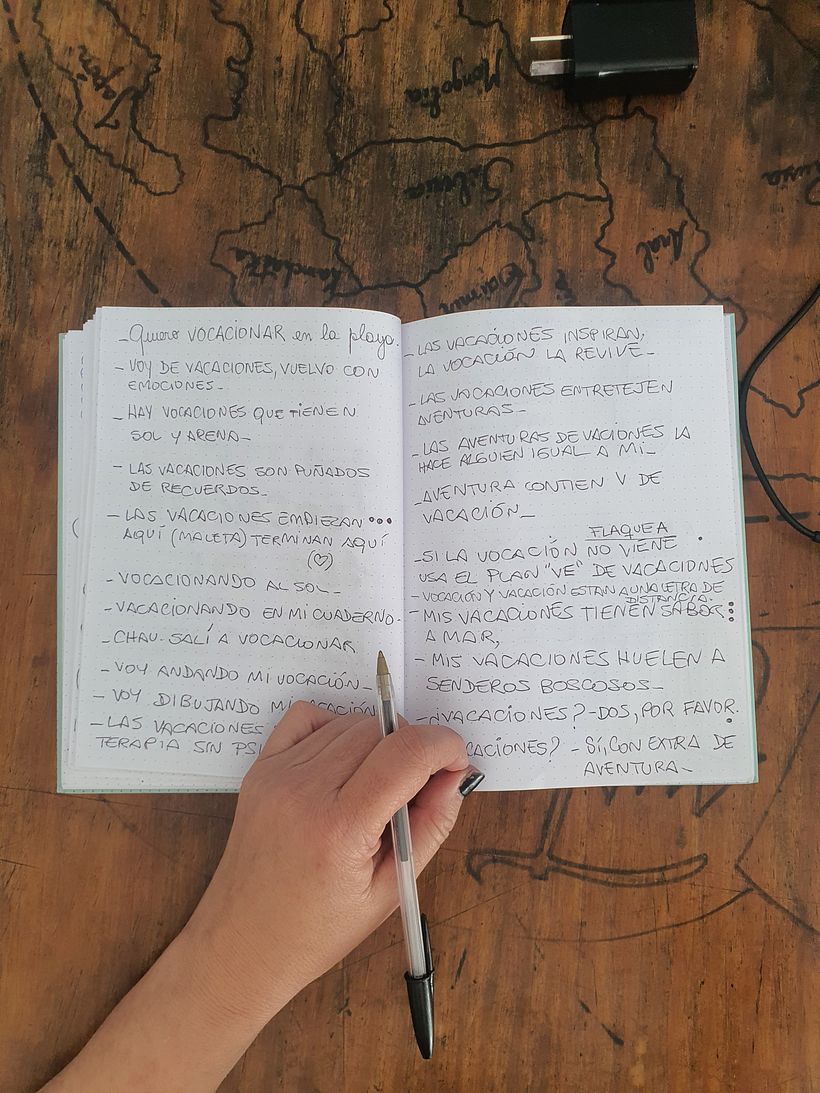 Mongolia
Siberia
Aral
Kamchatka
- Quiero VOCACIONAR en la playa.
- VOY DE VACACIONES, VUELVO CON
EMOCIONES -
- HAY VOCACIONES QUE TIENEN
SOL Y ARENA -
- LAS VACACIONES SON PUÑADOS
DE RECUERDOS -
- LAS VACACIONES EMPIEZAN ...
AQUÍ (MALETA) TERMINAN AQUÍ
(♡)
- VOCACIONANDO AL SOL -
- VACACIONANDO EN MI CUADERNO -
- CHAU. SALÍ A VOCACIONAR
- VOY ANDANDO MI VOCACIÓN -
- VOY DIBUJANDO
- LAS VACACIONES
TERAPIA SIN
- LAS VACACIONES INSPIRAN,
LA VOCACIÓN LA REVIVE -
- LAS VACACIONES ENTRETEJEN
AVENTURAS -
- LAS AVENTURAS DE VACIONES LA
HACE ALGUIEN IGUAL A MI -
- AVENTURA CONTIEN V DE
VACACIÓN -
FLAQUEA
- SI LA VOCACIÓN NO VIENE
USA EL PLAN "VE" DE VACACIONES
- VOCACIÓN Y VACACIÓN ESTAN A UNA LETRA DE
DISTANCIA -
- MIS VACACIONES TIENEN SABOR
A MAR,
- MIS VACACIONES HUELEN A
SENDEROS BOSCOSOS -
- ¿VACACIONES? - DOS, POR FAVOR.
CACIONES? - SÍ, CON EXTRA DE
AVENTURA -